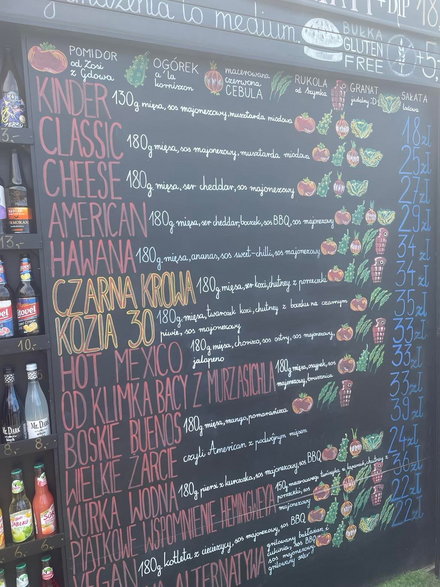 wysmażenia to medium
+DIP 18
BUŁKA
GLUTEN
FREE
+5
POMIDOR
od Zosi
z Gdowa
OGÓREK
a'la
korniszon
macerowana
czerwona
CEBULA
RUKOLA
GRANAT
SAŁATA
KINDER 130g mięsa, sos majonezowy, musztarda miodowa 18zł
CLASSIC 180g mięsa, sos majonezowy, musztarda miodowa 25zł
CHEESE 180g mięsa, ser cheddar, sos majonezowy 27zł
AMERICAN 180g mięsa, ser cheddar, boczek, sos BBQ, sos majonezowy 29zł
HAWANA 180g mięsa, ananas, sos sweet-chilli, sos majonezowy 34zł
CZARNA KROWA 180g mięsa, ser kozi, chutney z porzeczki 34zł
KOZIA 30 180g mięsa, twarożek kozi, chutney z boczku na czarnym
piwie, sos majonezowy 35zł
HOT MEXICO 180g mięsa, chorizo, sos ostry, sos majonezowy,
jalapeno 33zł
OD KLIMKA BACY Z MURZASICHLA 180g mięsa, oscypek, sos
majonezowy, żurawina 33zł
BOSKIE BUENOS 180g mięsa, mango, pomarańcza 33zł
WIELKIE ŻARCIE czyli American z podwójnym mięsem 39zł
KURKA WODNA 180g piersi z kurczaka, sos majonezowy, sos BBQ 24zł
PIĄTKOWE WSPOMNIENIE HEMINGWAYA 36zł
VEGAN 22zł
ALTERNATYWA 180g kotleta z ciecierzycy, sos majonezowy, sos BBQ 22zł
3,-
13,-
10,-
8,-
6,-
6,-